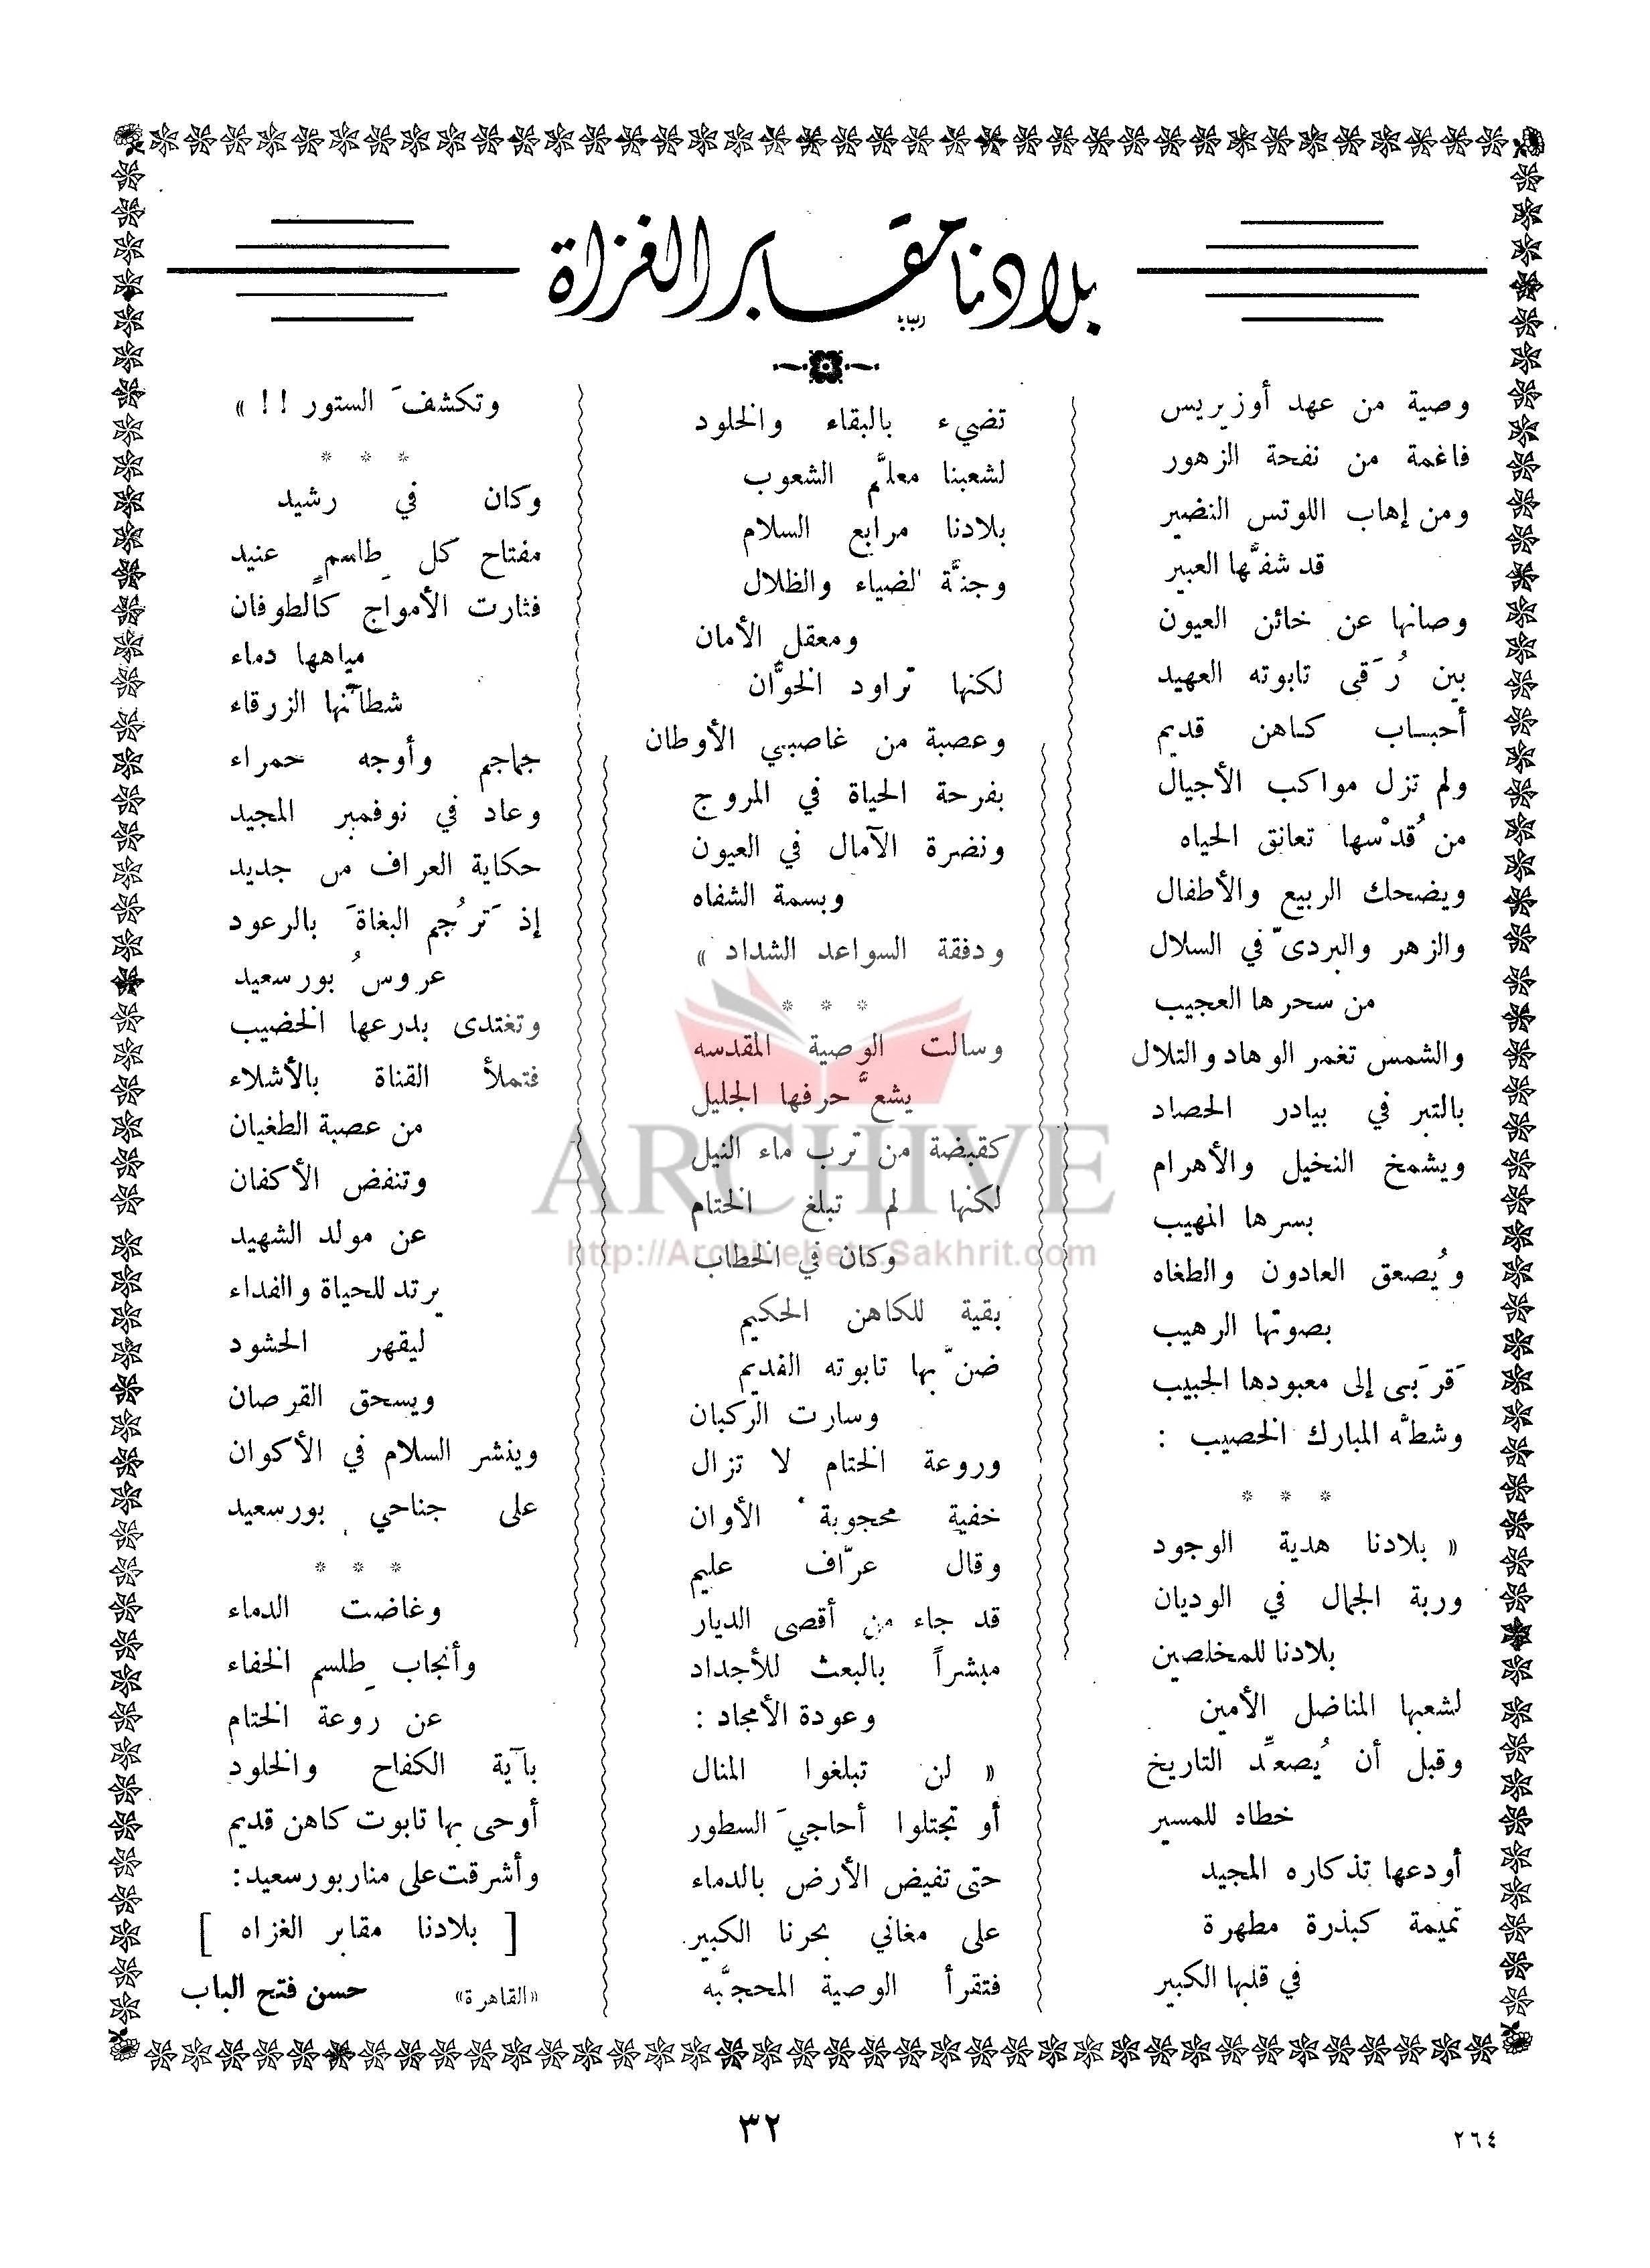 بلادنا مقابر الغزاة
وصية من عهد أوزيريس
فاغمة من نفحة الزهور
ومن إهاب اللوتس النضير
قد شفَّها العبير
وصانها عن خائن العيون
بين رُقَى تابوته العهيد
أحباب كاهن قديم
ولم تزل مواكب الأجيال
من قُدْسها تعانق الحياه
ويضحك الربيع والأطفال
والزهر والبردىّ في السلال
من سحرها العجيب
والشمس تغمر الوهاد والتلال
بالتبر في بيادر الحصاد
ويشمخ النخيل والأهرام
بسرها المهيب
ويُصعق العادون والطغاه
بصوتها الرهيب
قَرَبَى إلى معبودها الحبيب
وشطَّه المبارك الخصيب :
* * *
« بلادنا هدية الوجود
وربة الجمال في الوديان
بلادنا للمخلصين
لشعبها المناضل الأمين
وقبل أن يُصعِّد التاريخ
خطاه للمسير
أودعها تذكاره المجيد
تميمة كبذرة مطهرة
في قلبها الكبير
تضيء بالبقاء والخلود
لشعبنا معلَّم الشعوب
بلادنا مرابع السلام
وجنَّة الضياء والظلال
ومعقل الأمان
لكنها تراود الخوَّان
وعصبة من غاصبي الأوطان
بفرحة الحياة في المروج
ونضرة الآمال في العيون
وبسمة الشفاه
ودفقة السواعد الشداد »
* * *
وسالت الوصية المقدسه
يشعَّ حرفها الجليل
كقبضة من ترب ماء النيل
لكنها لم تبلغ الختام
وكان في الخطاب
بقية للكاهن الحكيم
ضنّ بها تابوته القديم
وسارت الركبان
وروعة الختام لا تزال
خفية محجوبة الأوان
وقال عرّاف عليم
قد جاء من أقصى الديار
مبشراً بالبعث للأجداد
وعودة الأمجاد :
« لن تبلغوا المنال
أو تجتلوا أحاجيَ السطور
حتى تفيض الأرض بالدماء
على مغاني بحرنا الكبير
فتقرأ الوصية المحجَّبه
وتكشفَ الستور !! »
* * *
وكان في رشيد
مفتاح كل طِلسمٍ عنيد
فثارت الأمواج كالطوفان
مياهها دماء
شطآنها الزرقاء
جماجم وأوجه حمراء
وعاد في نوفمبر المجيد
حكاية العراف من جديد
إذ تَرجُم البغاةَ بالرعود
عروسُ بورسعيد
وتغتدى بدرعها الخضيب
فتملأ القناة بالأشلاء
من عصبة الطغيان
وتنفض الأكفان
عن مولد الشهيد
يرتد للحياة والفداء
ليقهر الحشود
ويسحق القرصان
وينشر السلام في الأكوان
على جناحي بورسعيد
* * *
وغاضت الدماء
وأنجاب طِلسم الخفاء
عن روعة الختام
بآية الكفاح والخلود
أوحى بها تابوت كاهن قديم
وأشرقت على منار بورسعيد:
[ بلادنا مقابر الغزاه ]
«القاهرة» حسن فتح الباب
٣٢
٢٦٤
ARCHIVE
http://Archivebeta.Sakhrit.com